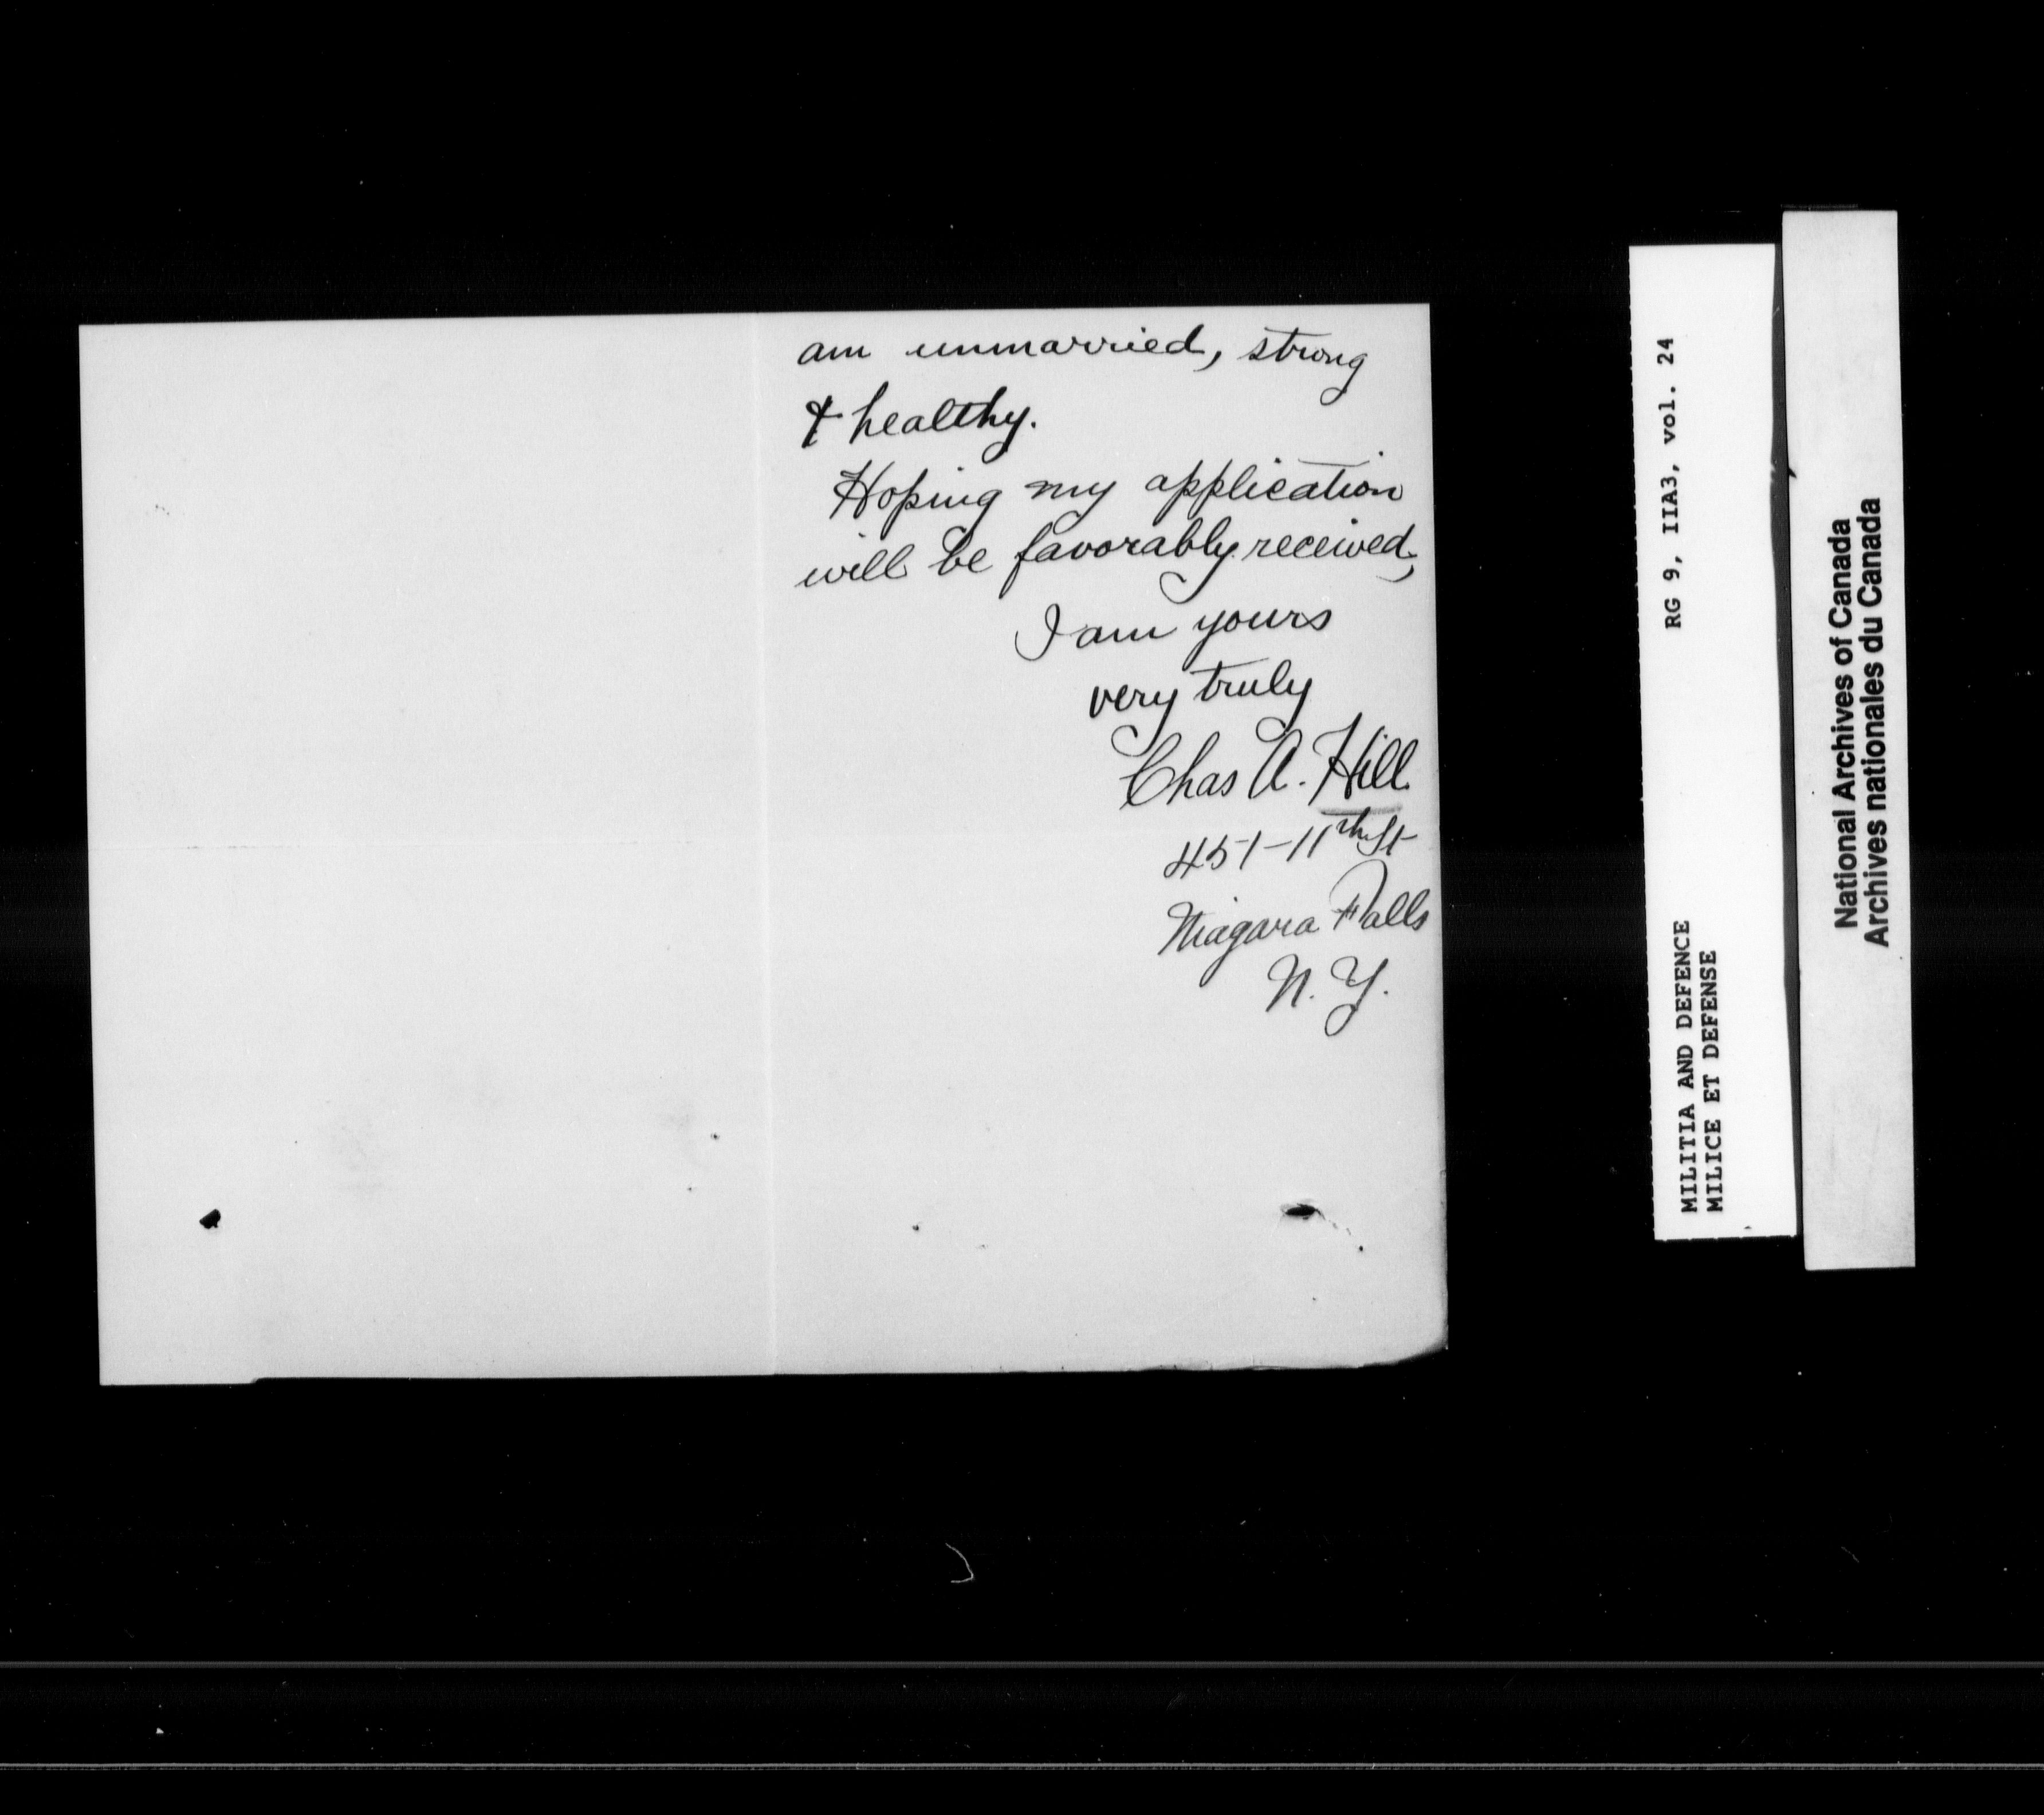 am unmarried, strong
& healthy.
Hoping my application
will be favorably received,
I am yours
very truly
Chas A. Hill
451-11th St
Niagara Falls
N. Y.
RG 9, IIA3, vol. 24
MILITIA AND DEFENCE
MILICE ET DEFENSE
National Archives of Canada
Archives nationales du Canada